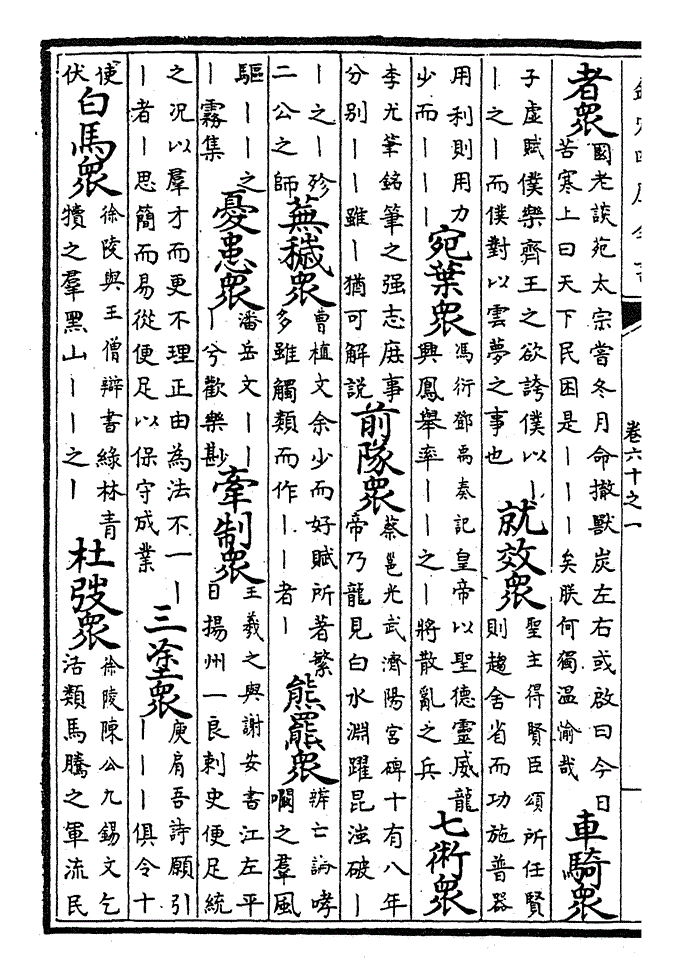 欽定四庫全書
卷六十之一
者眾
國老談苑太宗嘗冬月命撤獸炭左右或啟曰今日
苦寒上曰天下民困是丨丨丨矣朕何獨溫愉哉
車騎眾
子虛賦僕樂齊王之欲誇僕以丨
丨之丨而僕對以雲夢之事也
就效眾
聖主得賢臣頌所任賢
則趨舍省而功施普器
用利則用力
少而丨丨丨
宛葉眾
馮衍鄧禹奏記皇帝以聖德靈威龍
興鳳舉率丨丨之丨將散亂之兵
七術眾
李尤筆銘筆之强志庶事
分别丨丨雖丨猶可解說
前隊眾
蔡邕光武濟陽宮碑十有八年
帝乃龍見白水淵躍昆滍破丨
丨之丨殄
二公之師
蕪穢眾
曹植文余少而好賦所著繁
多雖觸類而作丨丨者丨
熊羆眾
辨亡論哮
㘚之羣風
驅丨丨之
丨霧集
憂患眾
潘岳文丨丨
丨兮歡樂尠
牽制眾
王羲之與謝安書江左平
日揚州一良刺史便足統
之況以羣才而更不理正由為法不一丨
丨者丨思簡而易從便足以保守成業
三塗眾
庾肩吾詩願引
丨丨丨俱令十
使
伏
白馬眾
徐陵與王僧辯書綠林青
犢之羣黑山丨丨之丨
杜弢眾
徐陵陳公九錫文乞
活類馬騰之軍流民